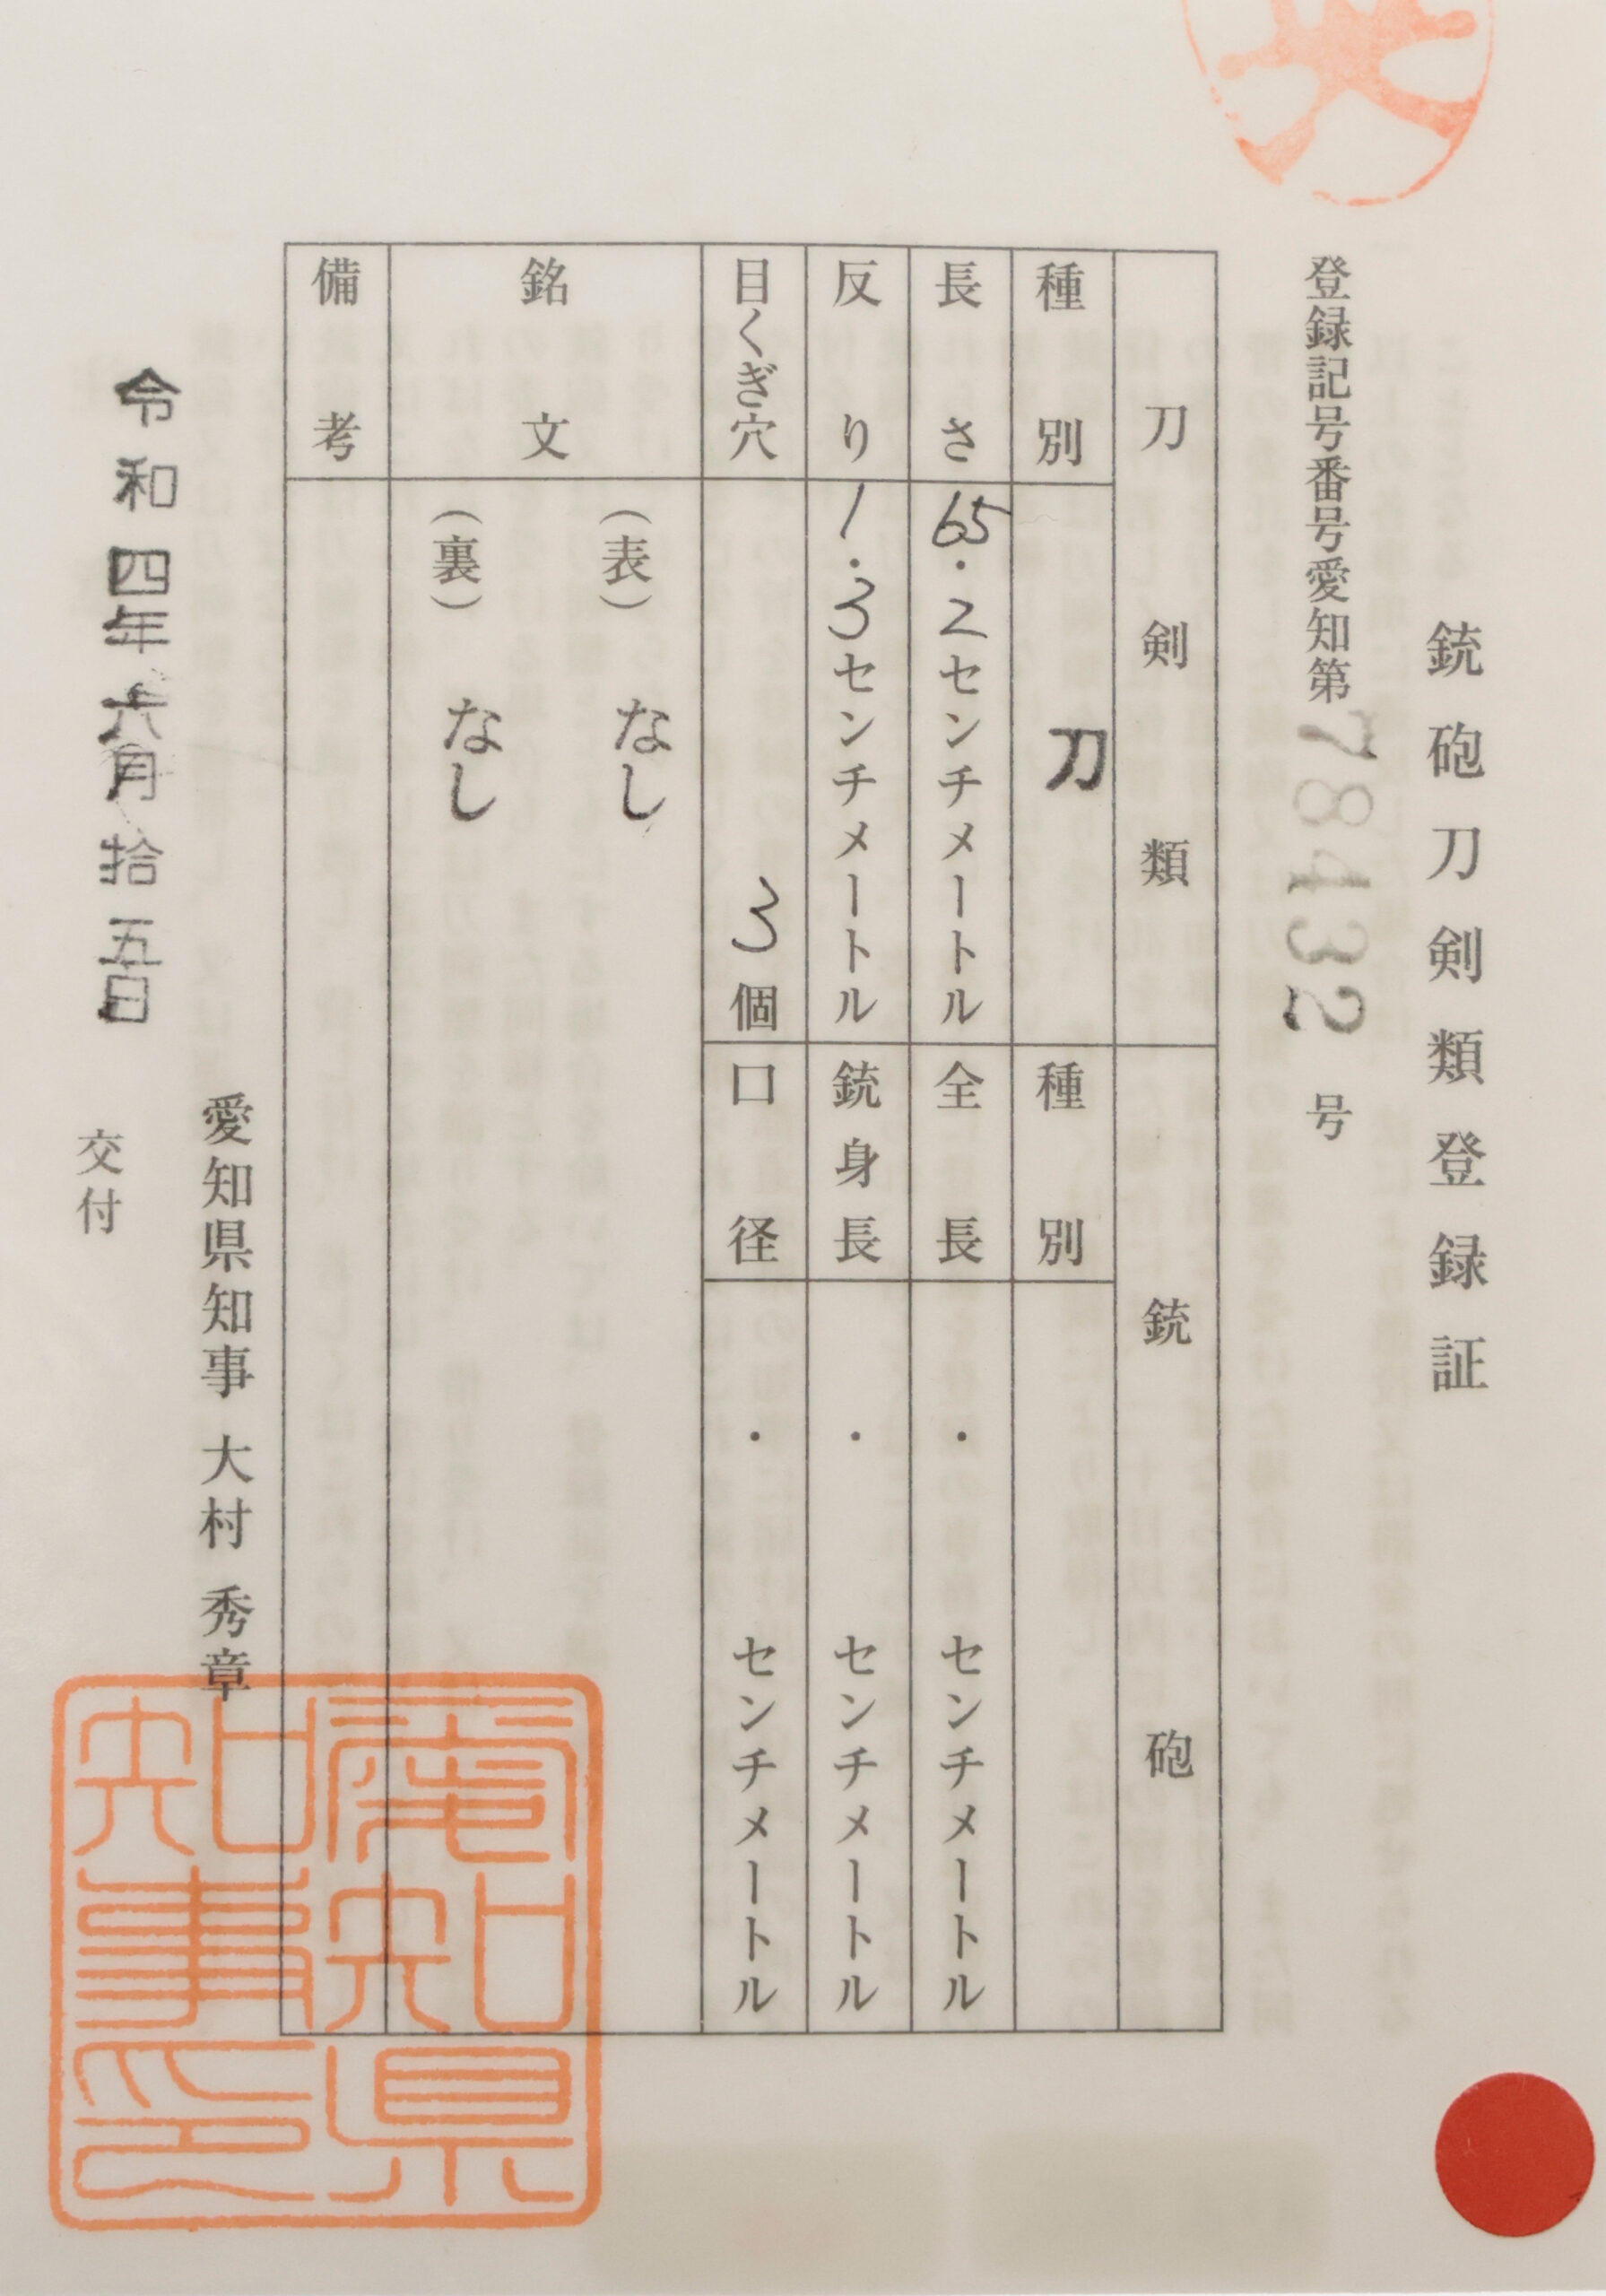 銃砲刀剣類登録証
登録記号番号愛知第78432号
刀剣類
銃砲
種別
刀
種別
長さ
65.2センチメートル
全長
・センチメートル
反り
1.3センチメートル
銃身長
・センチメートル
目くぎ穴
3個
口径
・センチメートル
銘文
(表)なし
(裏)なし
備考
愛知県知事 大村 秀章
愛知県知事印
令和四年六月拾五日 交付